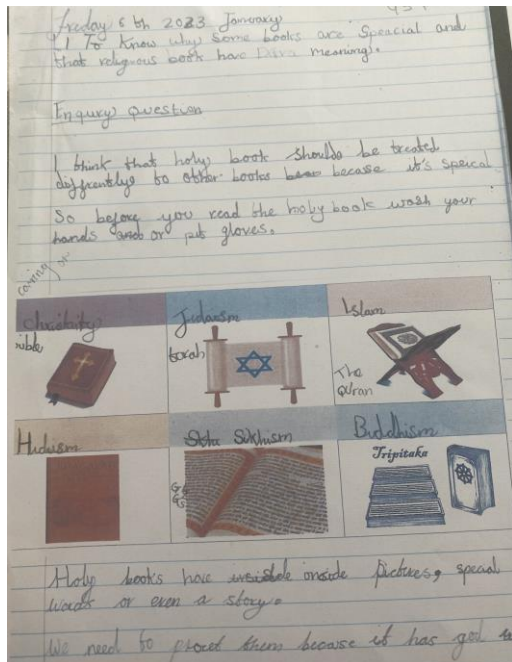 friday 6th 2023 January
To Know why some books are Speacial and
that religious book have meaning.
Enqury question
I think that holy book shoulde be treated
diffrently to other books becase it's speical
So before you read the holy book wash your
hands or put gloves.
Chrisinity
Judaism
Islam
bible
torah
The
Quran
Hiduism
Sikhism
Buddhism
Tripitaka
Holy books have inside pictures, special
words or even a story.
We need to protect them because it has god